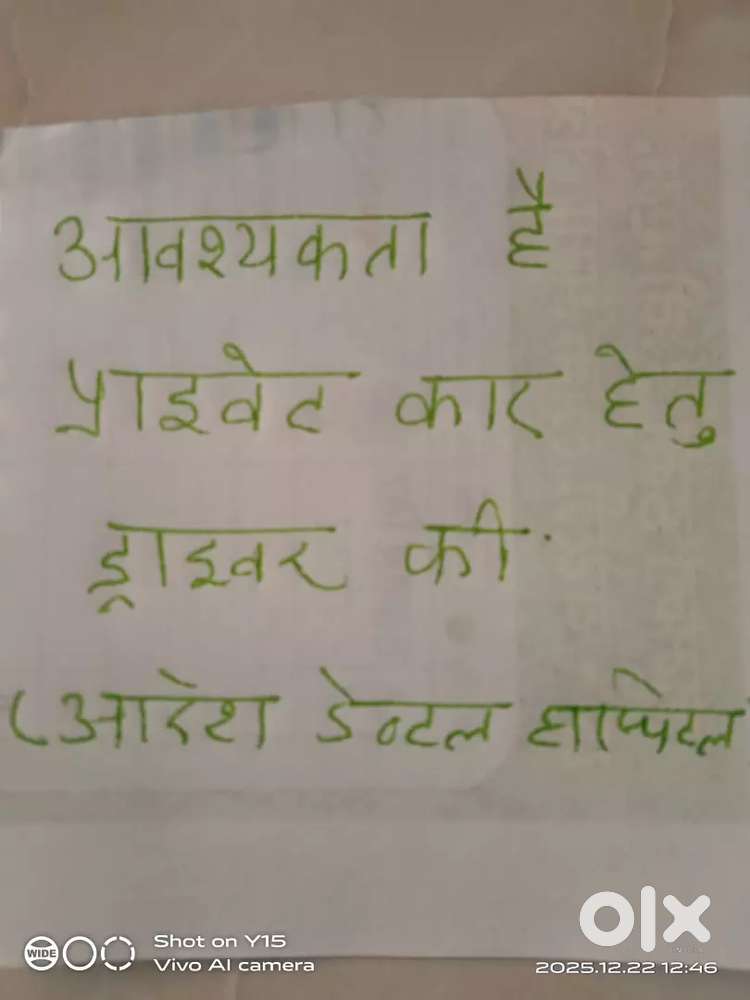 आवश्यकता है
प्राइवेट कार हेतु
ड्राइवर की
(आदेश डेन्टल हास्पिटल
olx
WIDE
Shot on Y15
Vivo AI camera
2025.12.22 12:46